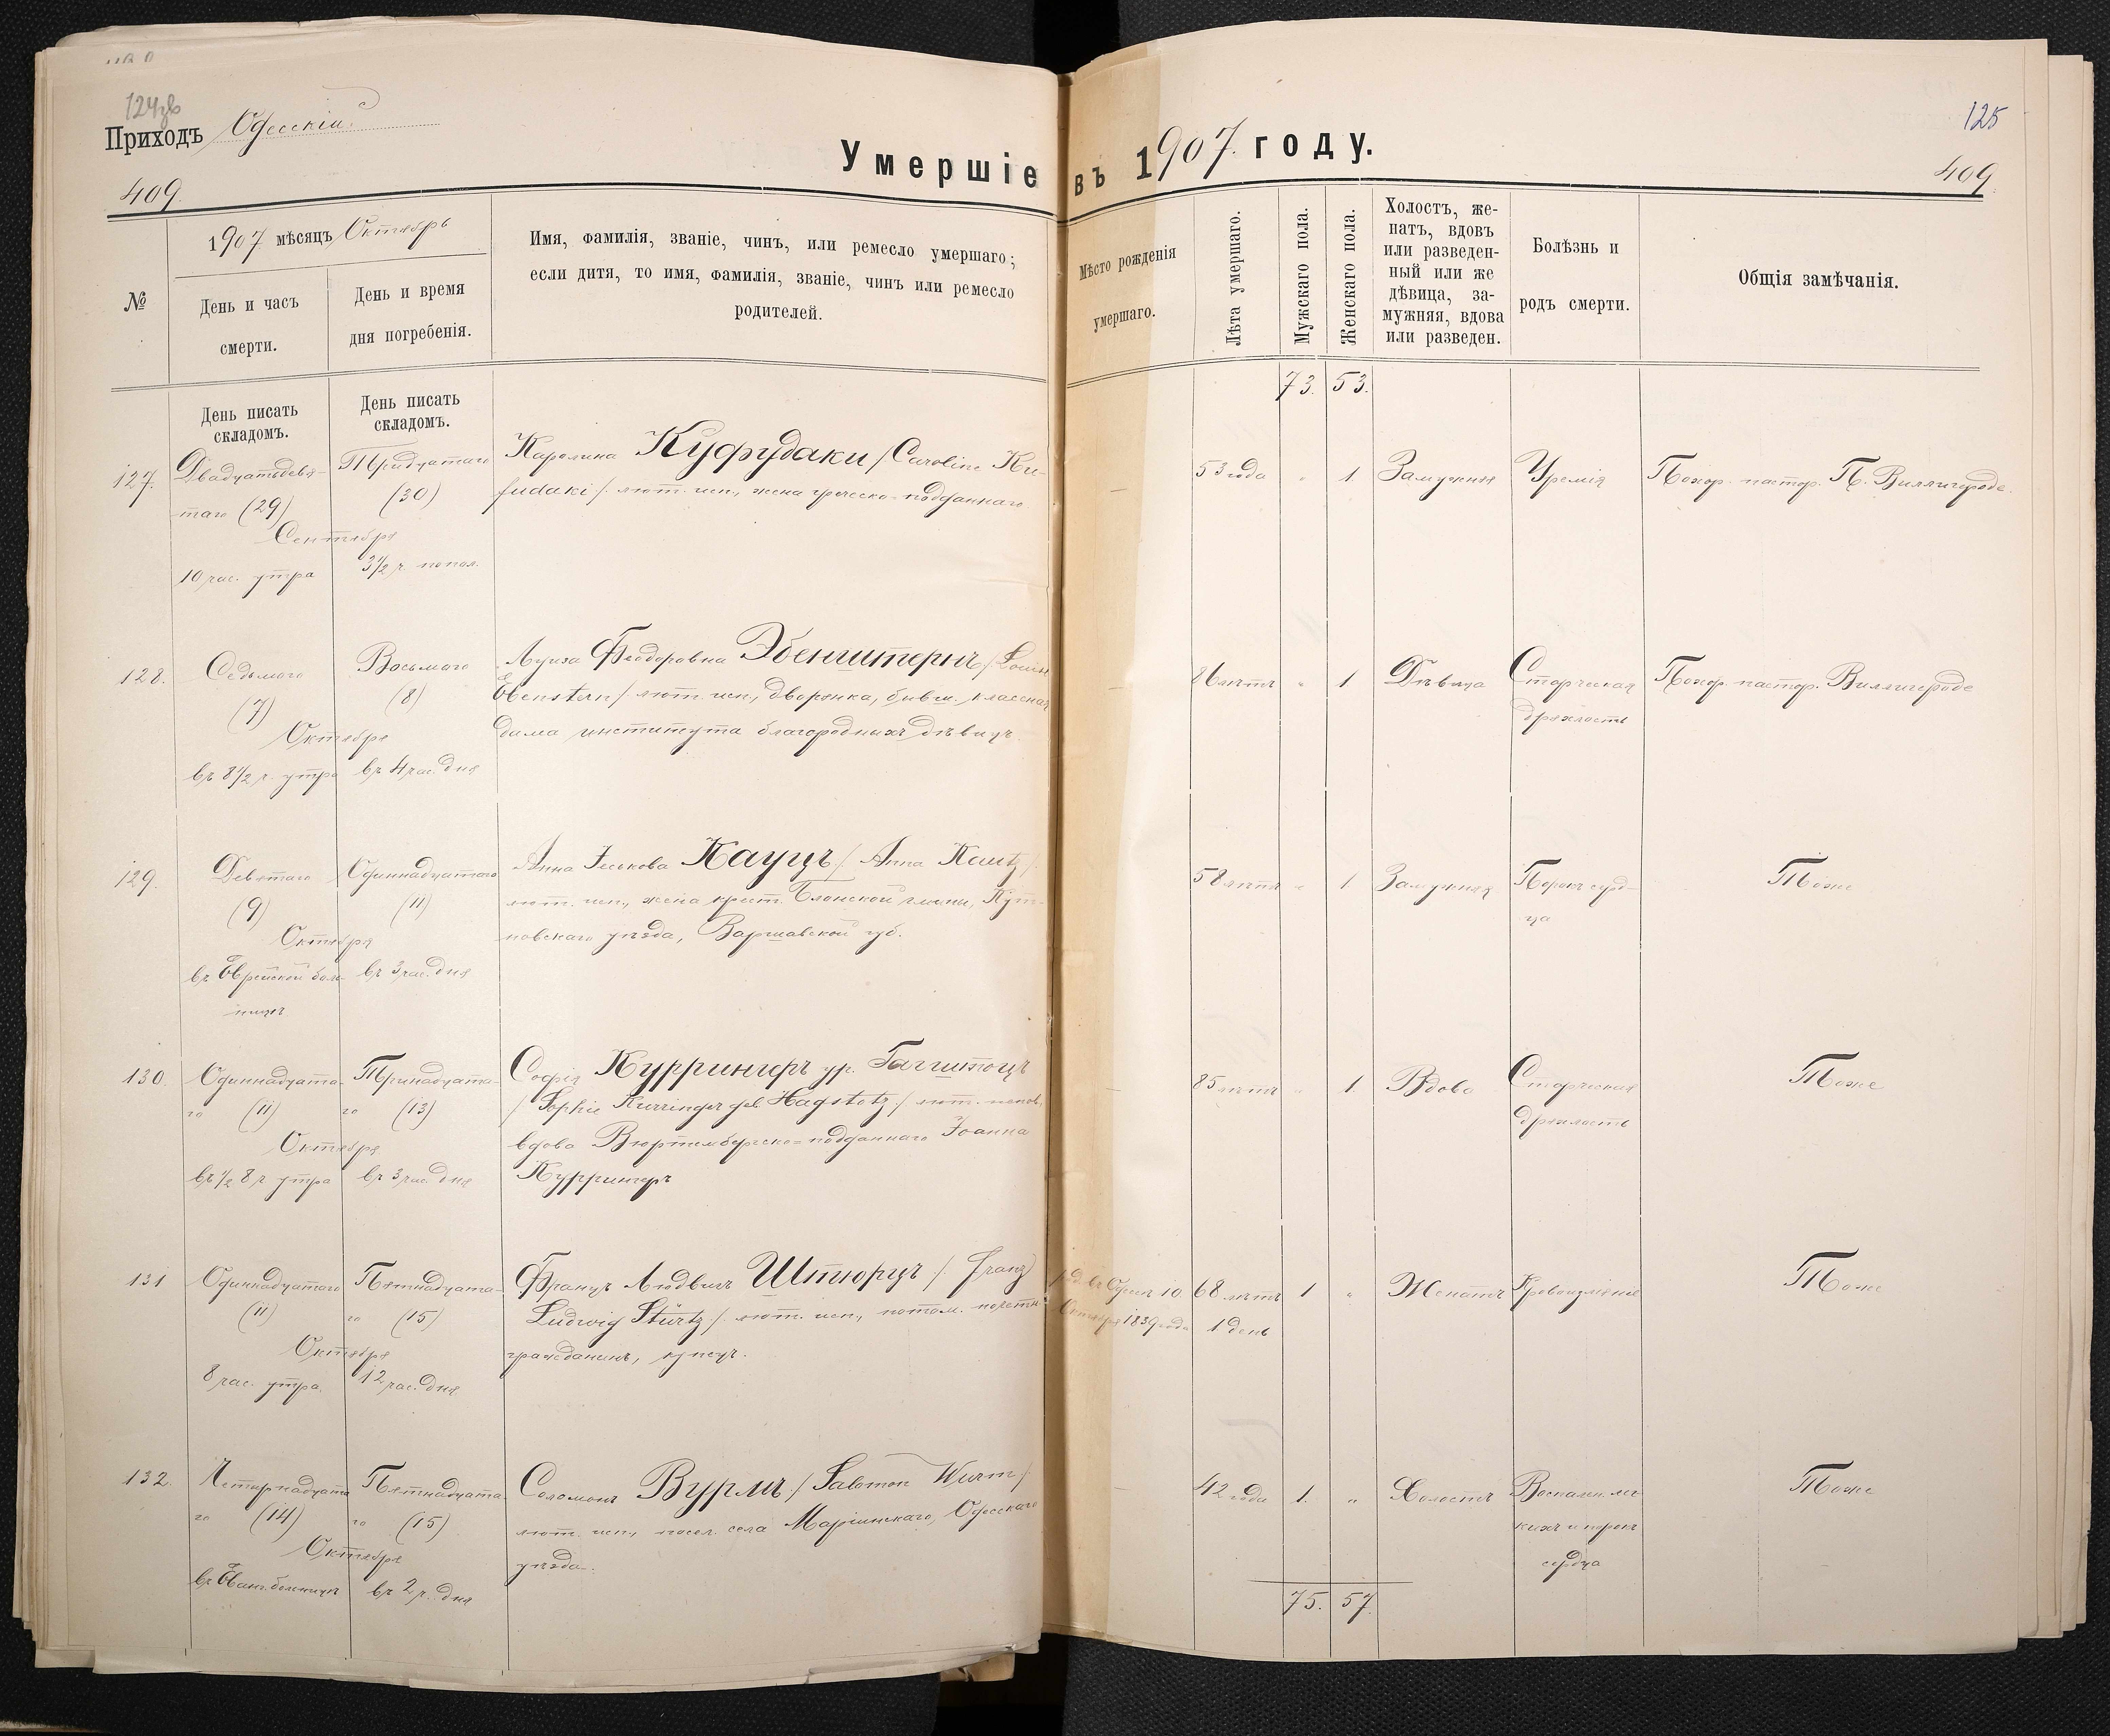 124об
Приходъ Одесскій.
409.
Умершіе въ 1907 году.
125
409.
№
1907 мѣсяцъ Октябрь
День и часъ
смерти.
День и время
дня погребенія.
Имя, фамилія, званіе, чинъ, или ремесло умершаго;
если дитя, то имя, фамилія, званіе, чинъ или ремесло
родителей.
Мѣсто рожденія
умершаго.
Лѣта умершаго.
Мужскаго пола.
Женскаго пола.
Холостъ, же-
натъ, вдовъ
или разведен-
ный или же
дѣвица, за-
мужняя, вдова
или разведен.
Болѣзнь и
родъ смерти.
Общія замѣчанія.
День писать
складомъ.
День писать
складомъ.
73. 53.
127.
Двадцатьдевя-
таго (29)
Тридцатаго
(30)
Сентября
10 час. утра
3 1/2 ч. попол.
Каролина Куфудаки /Caroline Ku-
fudaki/. лют. исп., жена греческо-подданнаго
—
53 года
"
1
Замужняя
Уремія
Похор. пастор. П. Виллигероде.
128.
Седьмого
(7)
Восьмого
(8)
Октября
въ 8 1/2 ч. утра
въ 4 час. дня
Луиза Ѳеодоровна Эбенштернъ /Louise
Ebenstern/ лют. исп., дворянка, бывш. классная
дама института благородныхъ дѣвицъ.
—
86 лѣтъ
"
1
Дѣвица
Старческая
дряхлость
Похор. пастор. Виллигероде
129.
Девятаго
(9)
Одиннадцатаго
(11)
Октября
въ Еврейской боль-
ницѣ
въ 3 час. дня
Анна Кауцъ /. Anna Kautz/.
лют. исп., жена крест. гмины, Кут-
новскаго уѣзда, Варшавской губ.
58 лѣтъ
"
1
Замужняя
Порокъ серд-
ца
Тоже
130.
Одиннадцата-
го (11)
Тринадцата-
го (13)
Октября
въ 1/2 8 ч. утра
въ 3 час. дня
Софія Куррингеръ ур. Гагштоцъ
/ Sophie Kurringer geb. Hagstotz /. лют. испов.,
вдова Вюртембергско-подданнаго Іоанна
Куррингеръ
—
85 лѣтъ
"
1
Вдова
Старческая
дряхлость
Тоже
131
Одиннадцатаго
(11)
Пятнадцата-
го (15)
Октября
8 час. утра.
12 час. дня
Францъ Людвигъ Штюрцъ /. Franz
Ludwig Stürtz/. лют. исп., потом. почетн.
гражданинъ, купецъ.
род. въ Одессѣ 10
Октября 1839 года
68 лѣтъ
1 день
1
"
Женатъ
Кровоизліяніе
Тоже
132.
Четырнадцата
го (14)
Пятнадцата-
го (15)
Октября
въ Еван. больницѣ
въ 2 ч. дня
Соломонъ Вурмъ /. Salomon Wurm/.
лют. исп., посел. села Маріинскаго, Одесскаго
уѣзда.
—
42 года
1.
"
Холостъ
Воспален. лег
кихъ и порокъ
сердца
Тоже
75. 57.